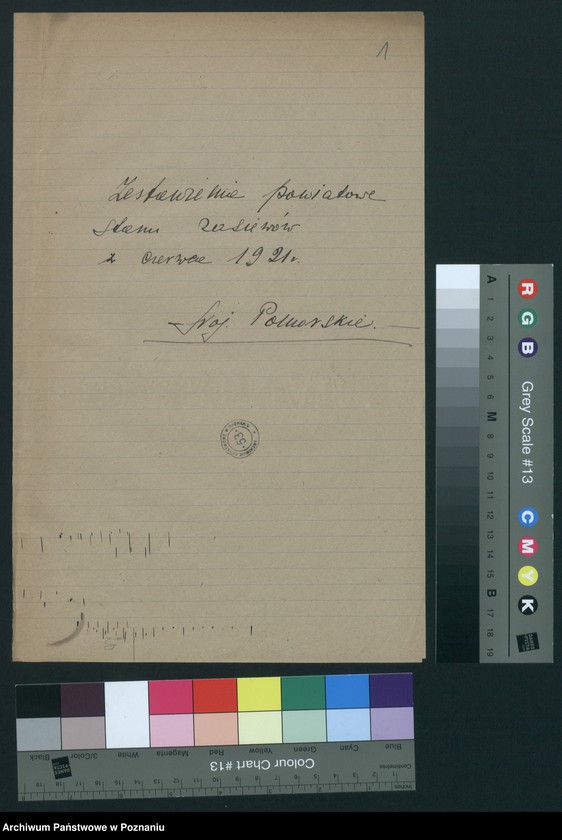 1
Zestawienie powiatowe
stanu zasiewów
z czerwca 1921r.
Woj. Pomorskie.
53
A 1 2 3 4 5 6 M 8 9 10 11 12 13 14 15 B 17 18 19
R G B Grey Scale #13 C M Y K
Black 3/Color White Magenta Red Yellow Green Cyan Blue
Colour Chart #13
Centimetres
Inches
Archiwum Państwowe w Poznaniu